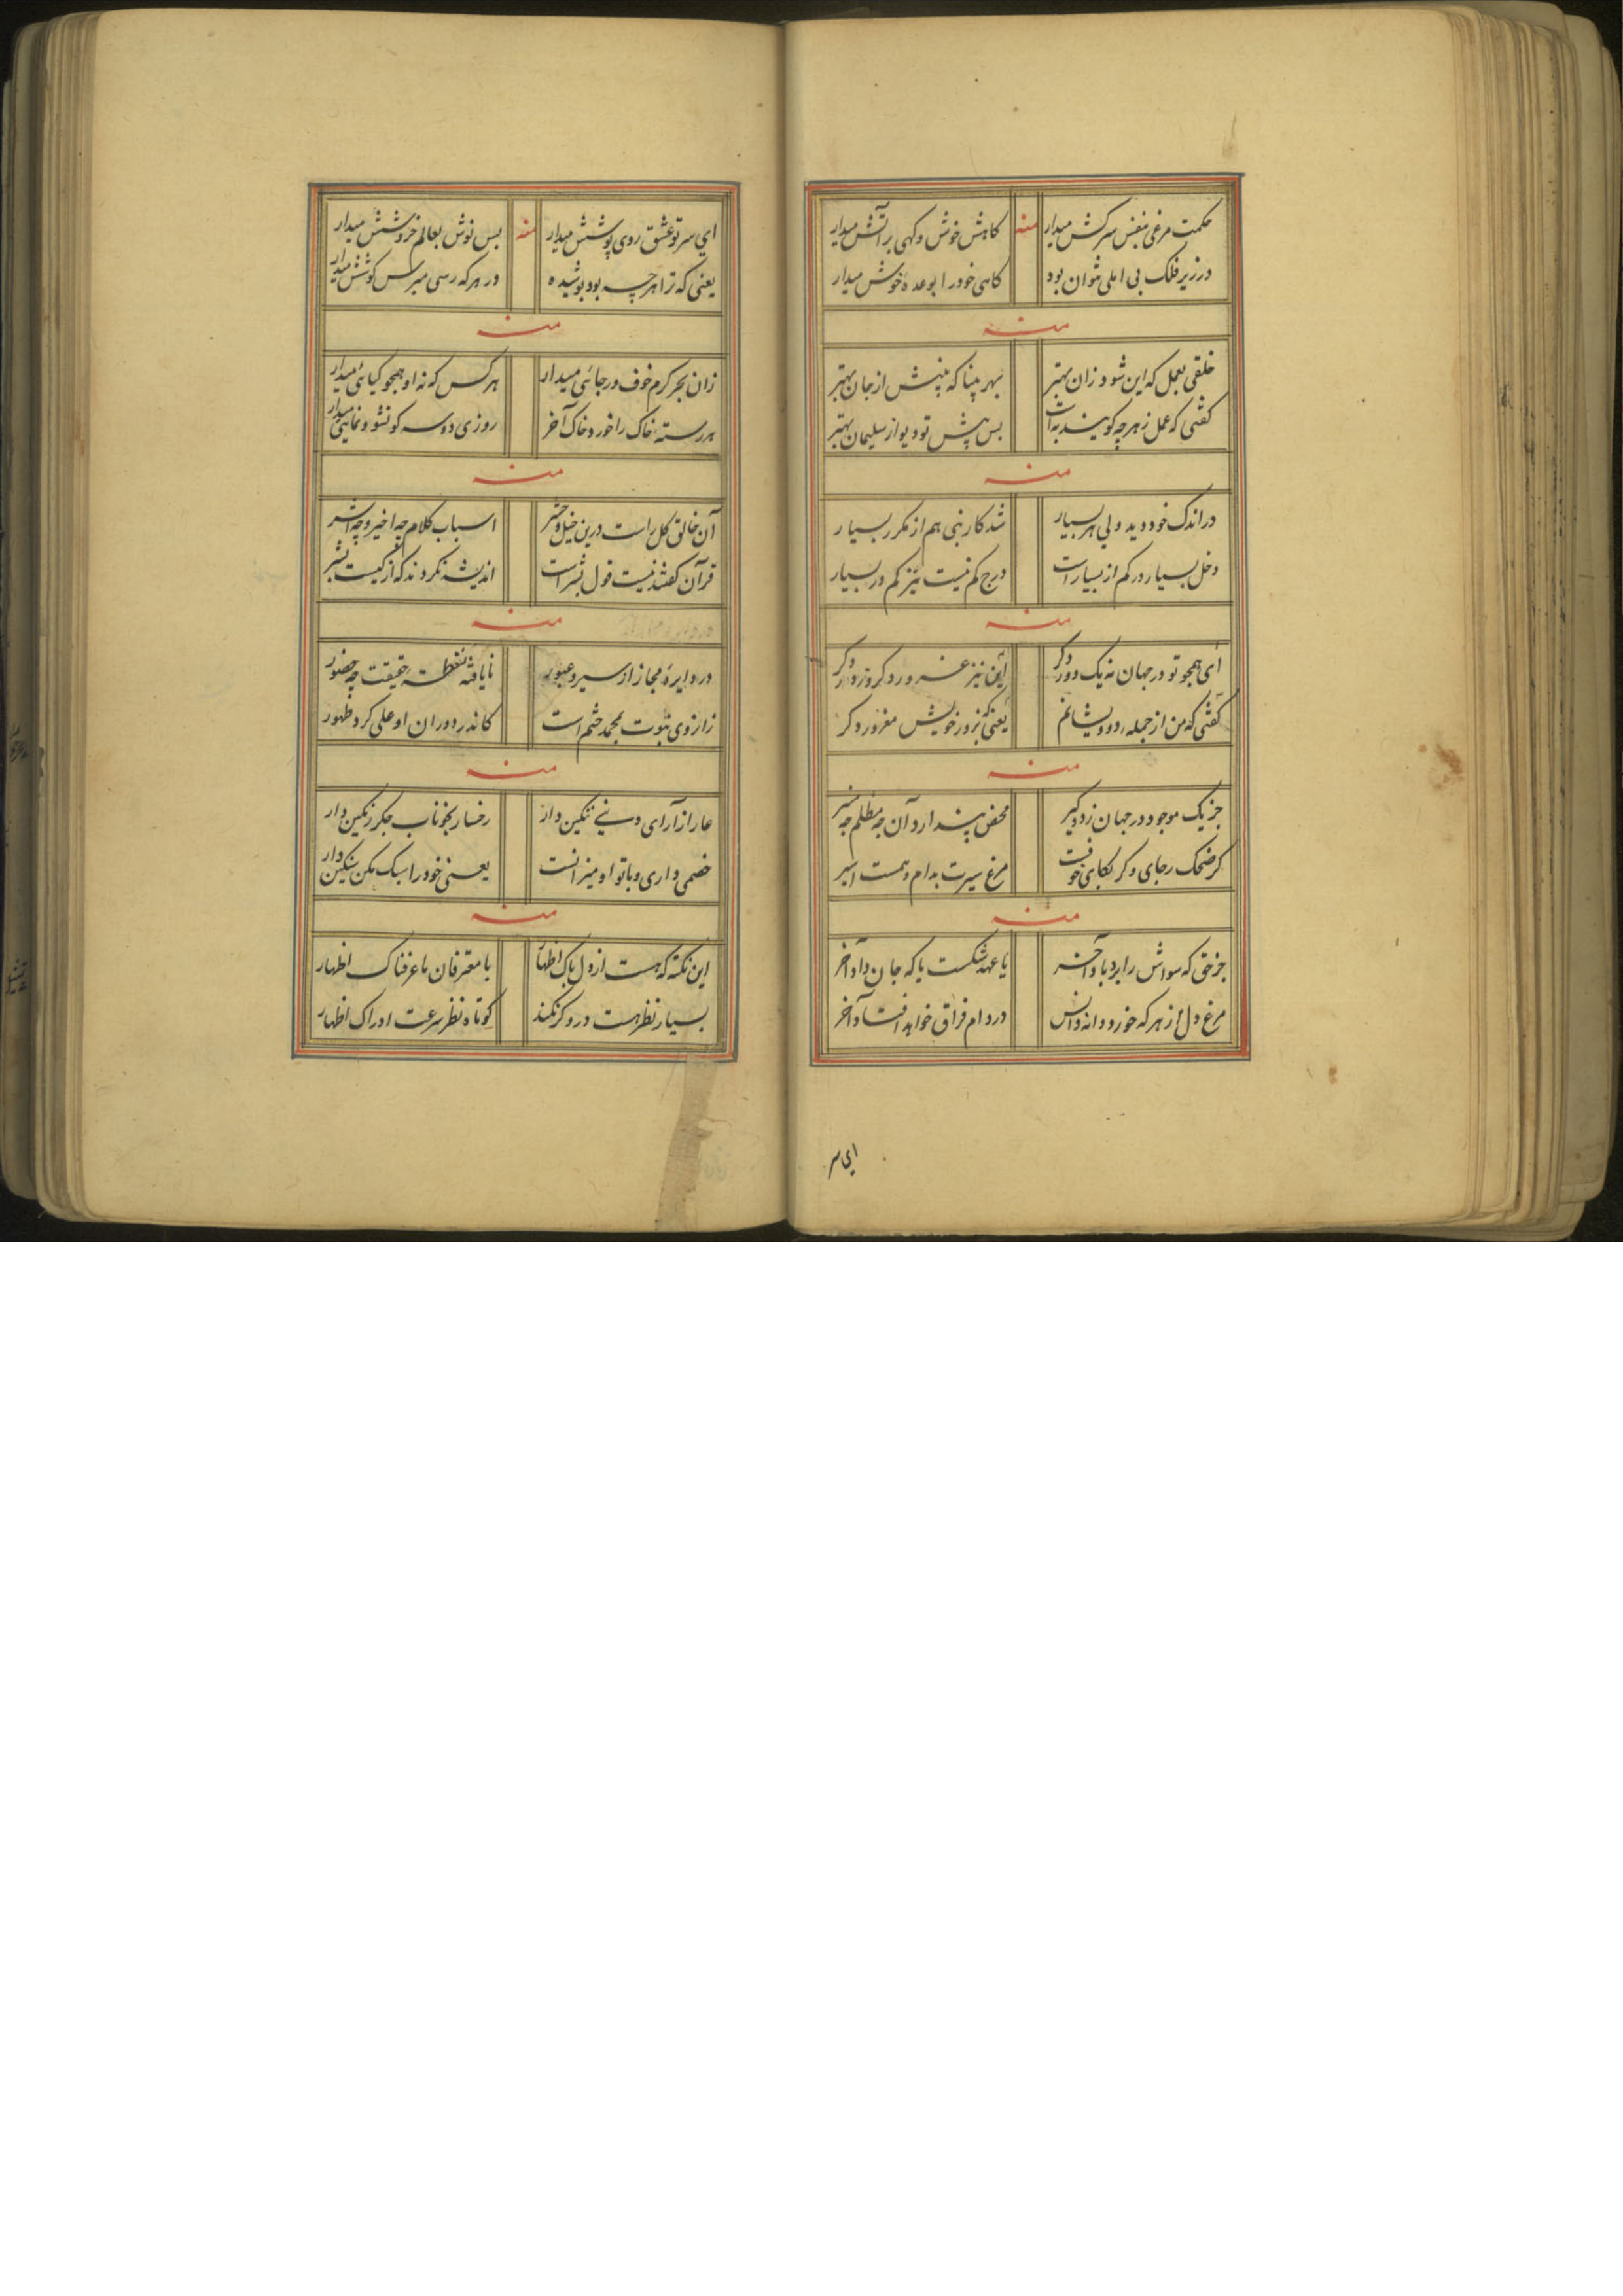 حکمت مرغی بنفس سرکش میدار منه کاهش خوش و کهی بر آتش میدار
در زیر فلک بی املی نتوان بود کاهی خود را بوعده خوش میدار
منه
خلقی بعمل که این شود زان بهتر بهر بینا که بینش از جان بهتر
کفتی که عمل زهرچه کویند به است بس پیش تو دیو از سلیمان بهتر
منه
در اندک خود دید ولی هر بسیار شد کار نبی هم از مکرر بسیار
دخل بسیار در کم از بسیار است درج کم نیست نیز کم در بسیار
منه
ای همچو تو در جهان نه یک دور دکر این نیز غرور دکر و زور دکر
کفتی که من از جمله درویشانم یعنی که بزور خویش مغرور دکر
منه
جز یک موجود در جهان زود کیر محض پندار و آن چه مظلم چه منیر
کر ضحک رجای و کر بکای خوفت مرغ سیرت بدام وهمست اسیر
منه
جز حق که سواش را برد باد آخر یا عهد شکست یا که جان داد آخر
مرغ دل از هر که خورد دانه انس در دام فراق خواهد افتاد آخر
ای سر
ای سر تو عشق روی پوشش میدار منه بس نوش بعالم خروشش میدار
یعنی که ترا هرچه بود پوشیده در هر که رسی میرس کوشش میدار
منه
زان بحر کرم خوف و رجائی میدار هر کس که نه او همچو کیائی میدار
هر رسته خاک را خورد خاک آخر روزی دو سه کو نشو و نمائی میدار
منه
آن خالق کل راست درین خیل و حشر اسباب کلام چه اخیر و چه اشر
قرآن کفتند نیست قول بشر است اندیشه نکردند که از کیست بشر
منه
در دایره مجاز از سیر و عبور نایافته نقطه حقیقت چه حضور
زانروی نبوت بمحمد ختم است کاندر دوران او علی کرد ظهور
منه
عار از آرای دنیی ننکین دار رخسار بخوناب جکر رنکین دار
خصمی داری و با تو او میزانست یعنی خود را سبک مکن سنکین دار
منه
این نکته که هست از دل پاک اظهار با معترفان ما عرفناک اظهار
بسیار نظر هست درو کر نکند کوتاه نظر سرعت ادراک اظهار